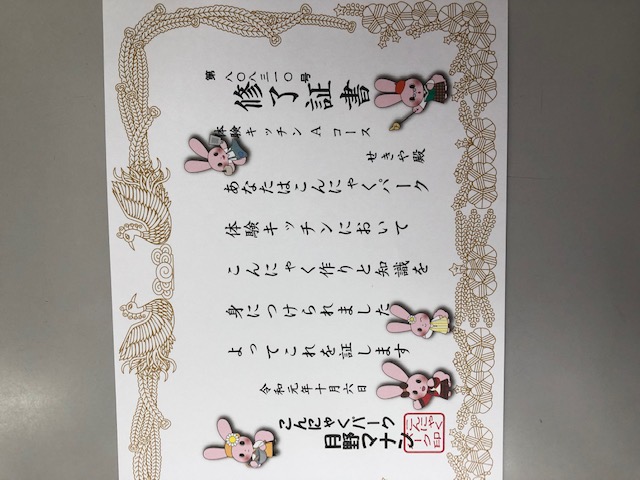 第八〇八三一〇号
修了証書
体験キッチンAコース
せきや殿
あなたはこんにゃくパーク
体験キッチンにおいて
こんにゃく作りと知識を
身につけられました
よってこれを証します
令和元年十月六日
こんにゃくパーク
日野マナン
こんにゃくパーク印